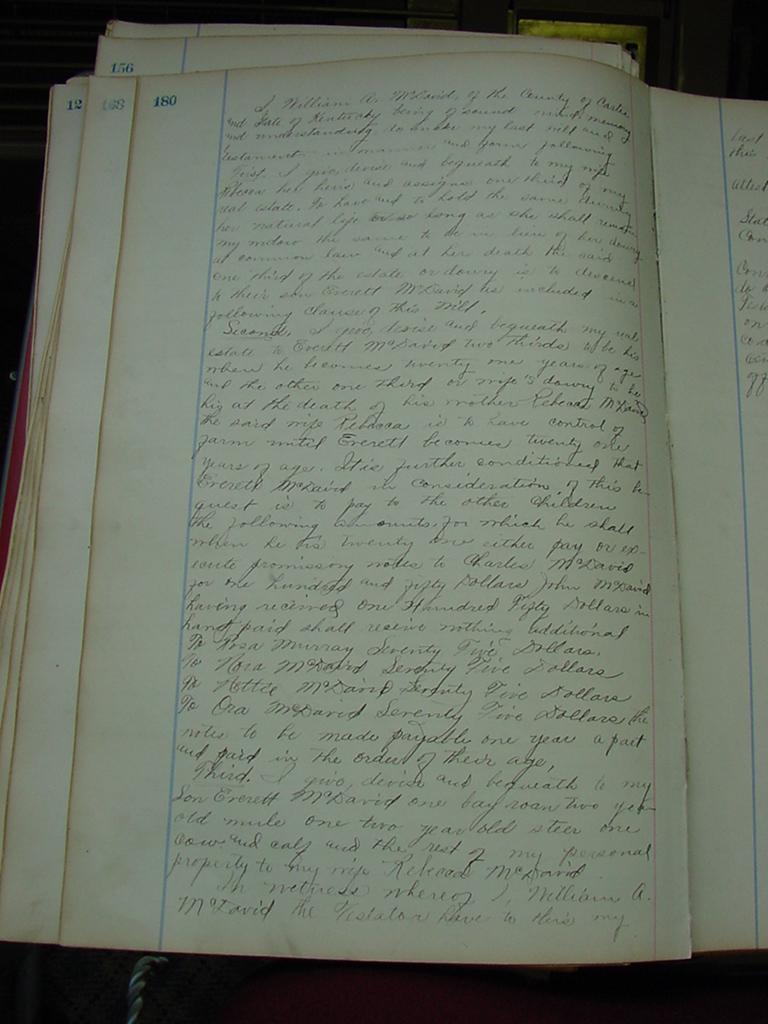 156
12 168 180
I William A. McDavid, of the County of Carter
and State of Kentucky being of sound mind, memory
and understanding do make my last will and
testament in manner and form following
First. I give, devise and bequeath to my wife
Rebecca her heirs and assigns one third of my
real estate. To have and to hold the same during
her natural life or so long as she shall remain
my widow the same to be in lieu of her dowry
at common law and at her death the said
one third of the estate or dowry is to descend
to their son Everett McDavid as included in a
following clause of this Will.
Second. I give, devise and bequeath my real
estate to Everett McDavid two thirds to be his
when he becomes twenty one years of age
and the other one third or wife's dowry to be
his at the death of his mother Rebecca McDavid
the said wife Rebecca is to have control of
farm until Everett becomes twenty one
years of age. It is further conditioned that
Everett McDavid in consideration of this be-
quest is to pay to the other children
the following amounts, for which he shall
when he is twenty one either pay or ex-
ecute promissory notes to Charles McDavid
for one hundred and fifty Dollars John McDavid
having received one Hundred Fifty Dollars in
hand paid shall receive nothing additional
To Rosa Murray Seventy Five Dollars,
To Nora McDavid Seventy Five Dollars
To Hettie McDavid Seventy Five Dollars
To Ora McDavid Seventy Five Dollars the
notes to be made payable one year apart
and paid in the order of their age,
Third. I give, devise and bequeath to my
Son Everett McDavid one bay roan two year
old mule one two year old steer one
cow and calf and the rest of my personal
property to my wife Rebecca McDavid
In witness whereof I, William A.
McDavid the Testator have to this my
last
this
attest
Stat
Coun